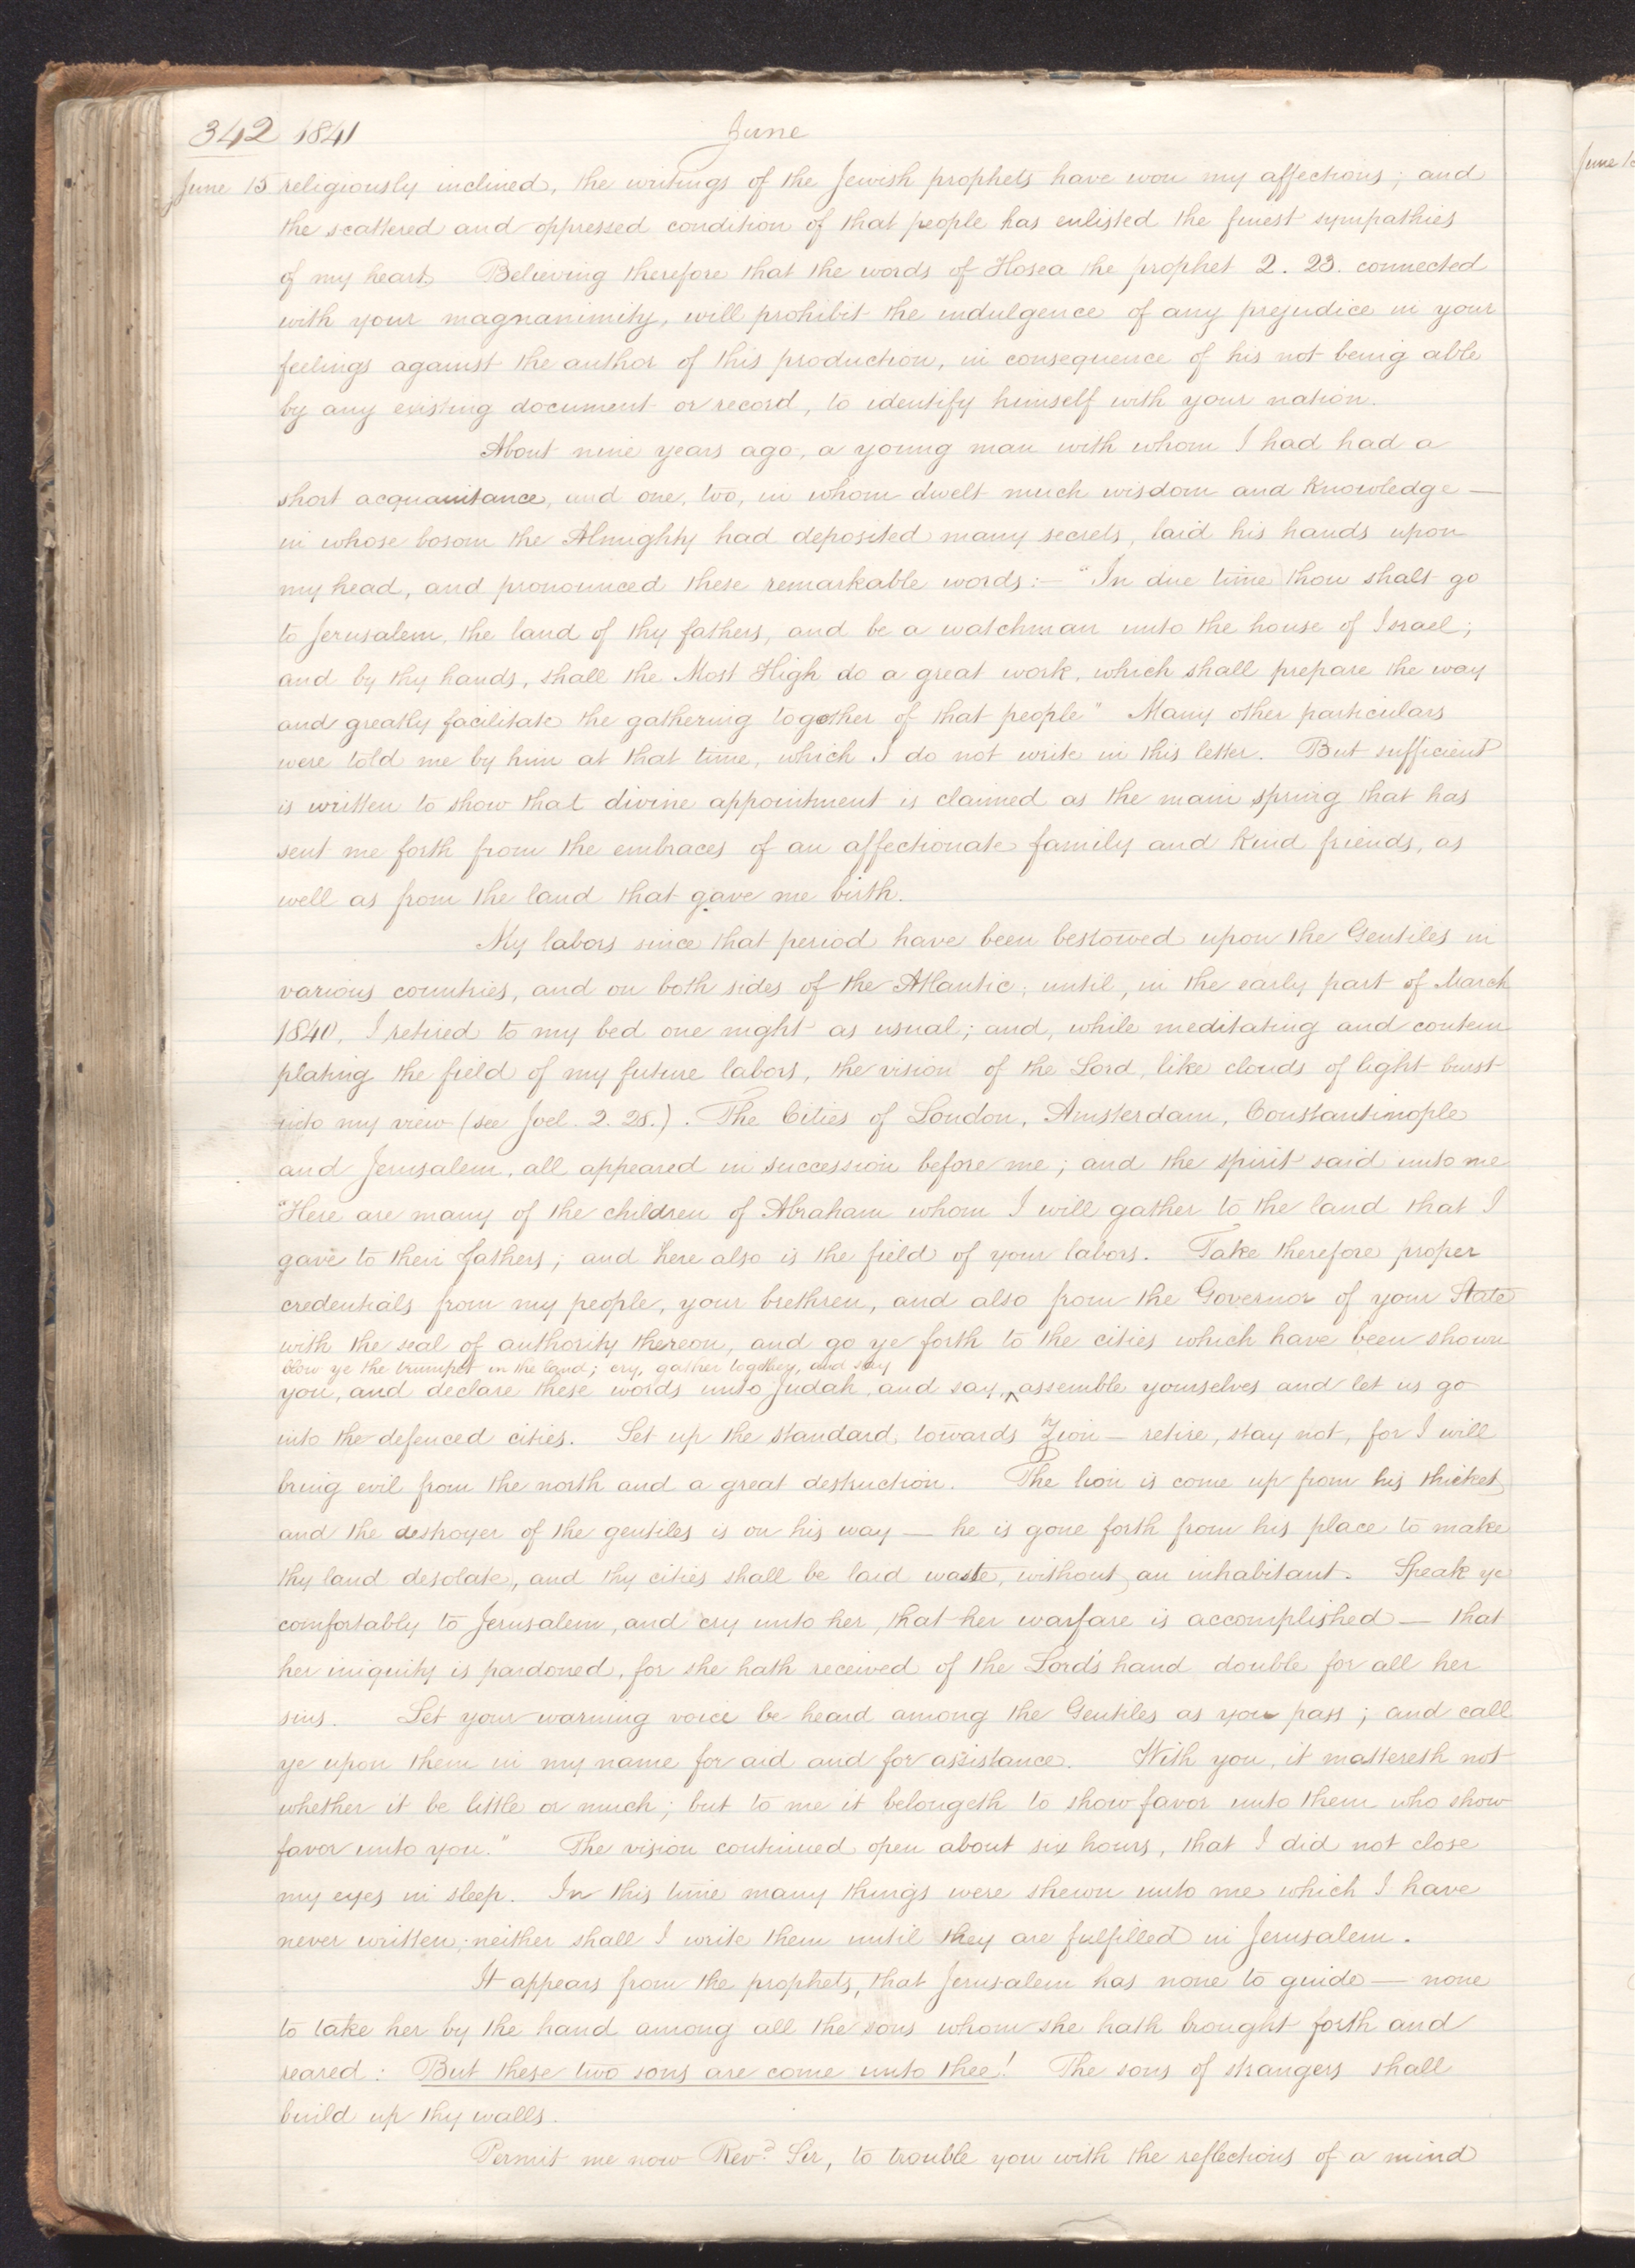 342 1841 June
June 15 religiously inclined, the writings of the Jewish prophets have won my affections; and
the scattered and oppressed condition of that people has enlisted the finest sympathies
of my heart. Believing therefore that the words of Hosea the prophet 2. 23. connected
with your magnanimity, will prohibit the indulgence of any prejudice in your
feelings against the author of this production, in consequence of his not being able
by any existing document or record, to identify himself with your nation.
About nine years ago, a young man with whom I had had a
short acquaintance, and one, too, in whom dwelt much wisdom and knowledge —
in whose bosom the Almighty had deposited many secrets, laid his hands upon
my head, and pronounced these remarkable words:— "In due time thou shalt go
to Jerusalem, the land of thy fathers, and be a watchman unto the house of Israel;
and by thy hands, shall the Most High do a great work, which shall prepare the way
and greatly facilitate the gathering together of that people" Many other particulars
were told me by him at that time, which I do not write in this letter. But sufficient
is written to show that divine appointment is claimed as the main spring that has
sent me forth from the embraces of an affectionate family and kind friends, as
well as from the land that gave me birth.
My labors since that period have been bestowed upon the Gentiles in
various countries, and on both sides of the Atlantic; until, in the early part of March
1840, I retired to my bed one night as usual; and, while meditating and contem
plating the field of my future labors, the vision of the Lord, like clouds of light burst
into my view (see Joel. 2. 28.). The Cities of London, Amsterdam, Constantinople
and Jerusalem, all appeared in succession before me; and the spirit said unto me
"Here are many of the children of Abraham whom I will gather to the land that I
gave to their fathers; and here also is the field of your labors. Take therefore proper
credentials from my people, your brethren, and also from the Governor of your State
with the seal of authority thereon, and go ye forth to the cities which have been shown
blow ye the trumpet in the land; cry, gather together, and say
you, and declare these words unto Judah, and say, ^ assemble yourselves and let us go
into the defenced cities. Set up the standard, towards Zion — retire, stay not, for I will
bring evil from the north and a great destruction. The lion is come up from his thicket
and the destroyer of the gentiles is on his way — he is gone forth from his place to make
thy land desolate, and thy cities shall be laid waste, without an inhabitant. Speak ye
comfortably to Jerusalem, and cry unto her, that her warfare is accomplished — that
her iniquity is pardoned, for she hath received of the Lord's hand double for all her
sins. Let your warning voice be heard among the Gentiles as you pass; and call
ye upon them in my name for aid and for assistance. With you, it mattereth not
whether it be little or much; but to me it belongeth to show favor unto them who show
favor unto you." The vision continued open about six hours, that I did not close
my eyes in sleep. In this time many things were shewn unto me which I have
never written; neither shall I write them until they are fulfilled in Jerusalem.
It appears from the prophets, that Jerusalem has none to guide — none
to take her by the hand among all the sons whom she hath brought forth and
reared: But these two sons are come unto thee! The sons of strangers shall
build up thy walls.
Permit me now Revd. Sir, to trouble you with the reflections of a mind
June 15